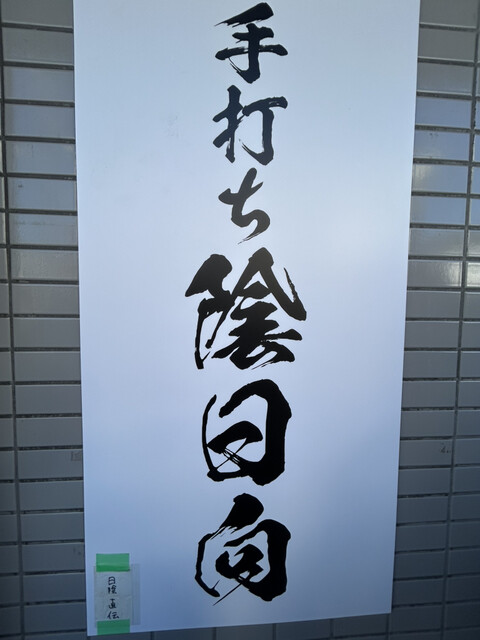 手打ち陰日向
日陰 直伝